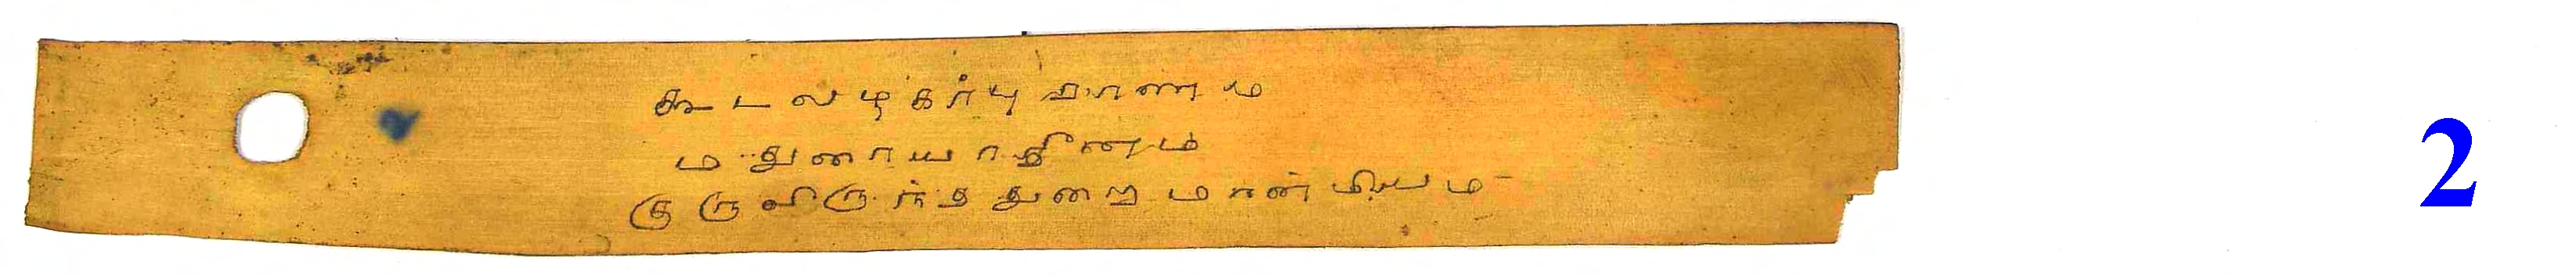 கூடலழகர்புறாணம
மதுரையாதீனம்
குருவிருந்ததுறை மான்மியம
2